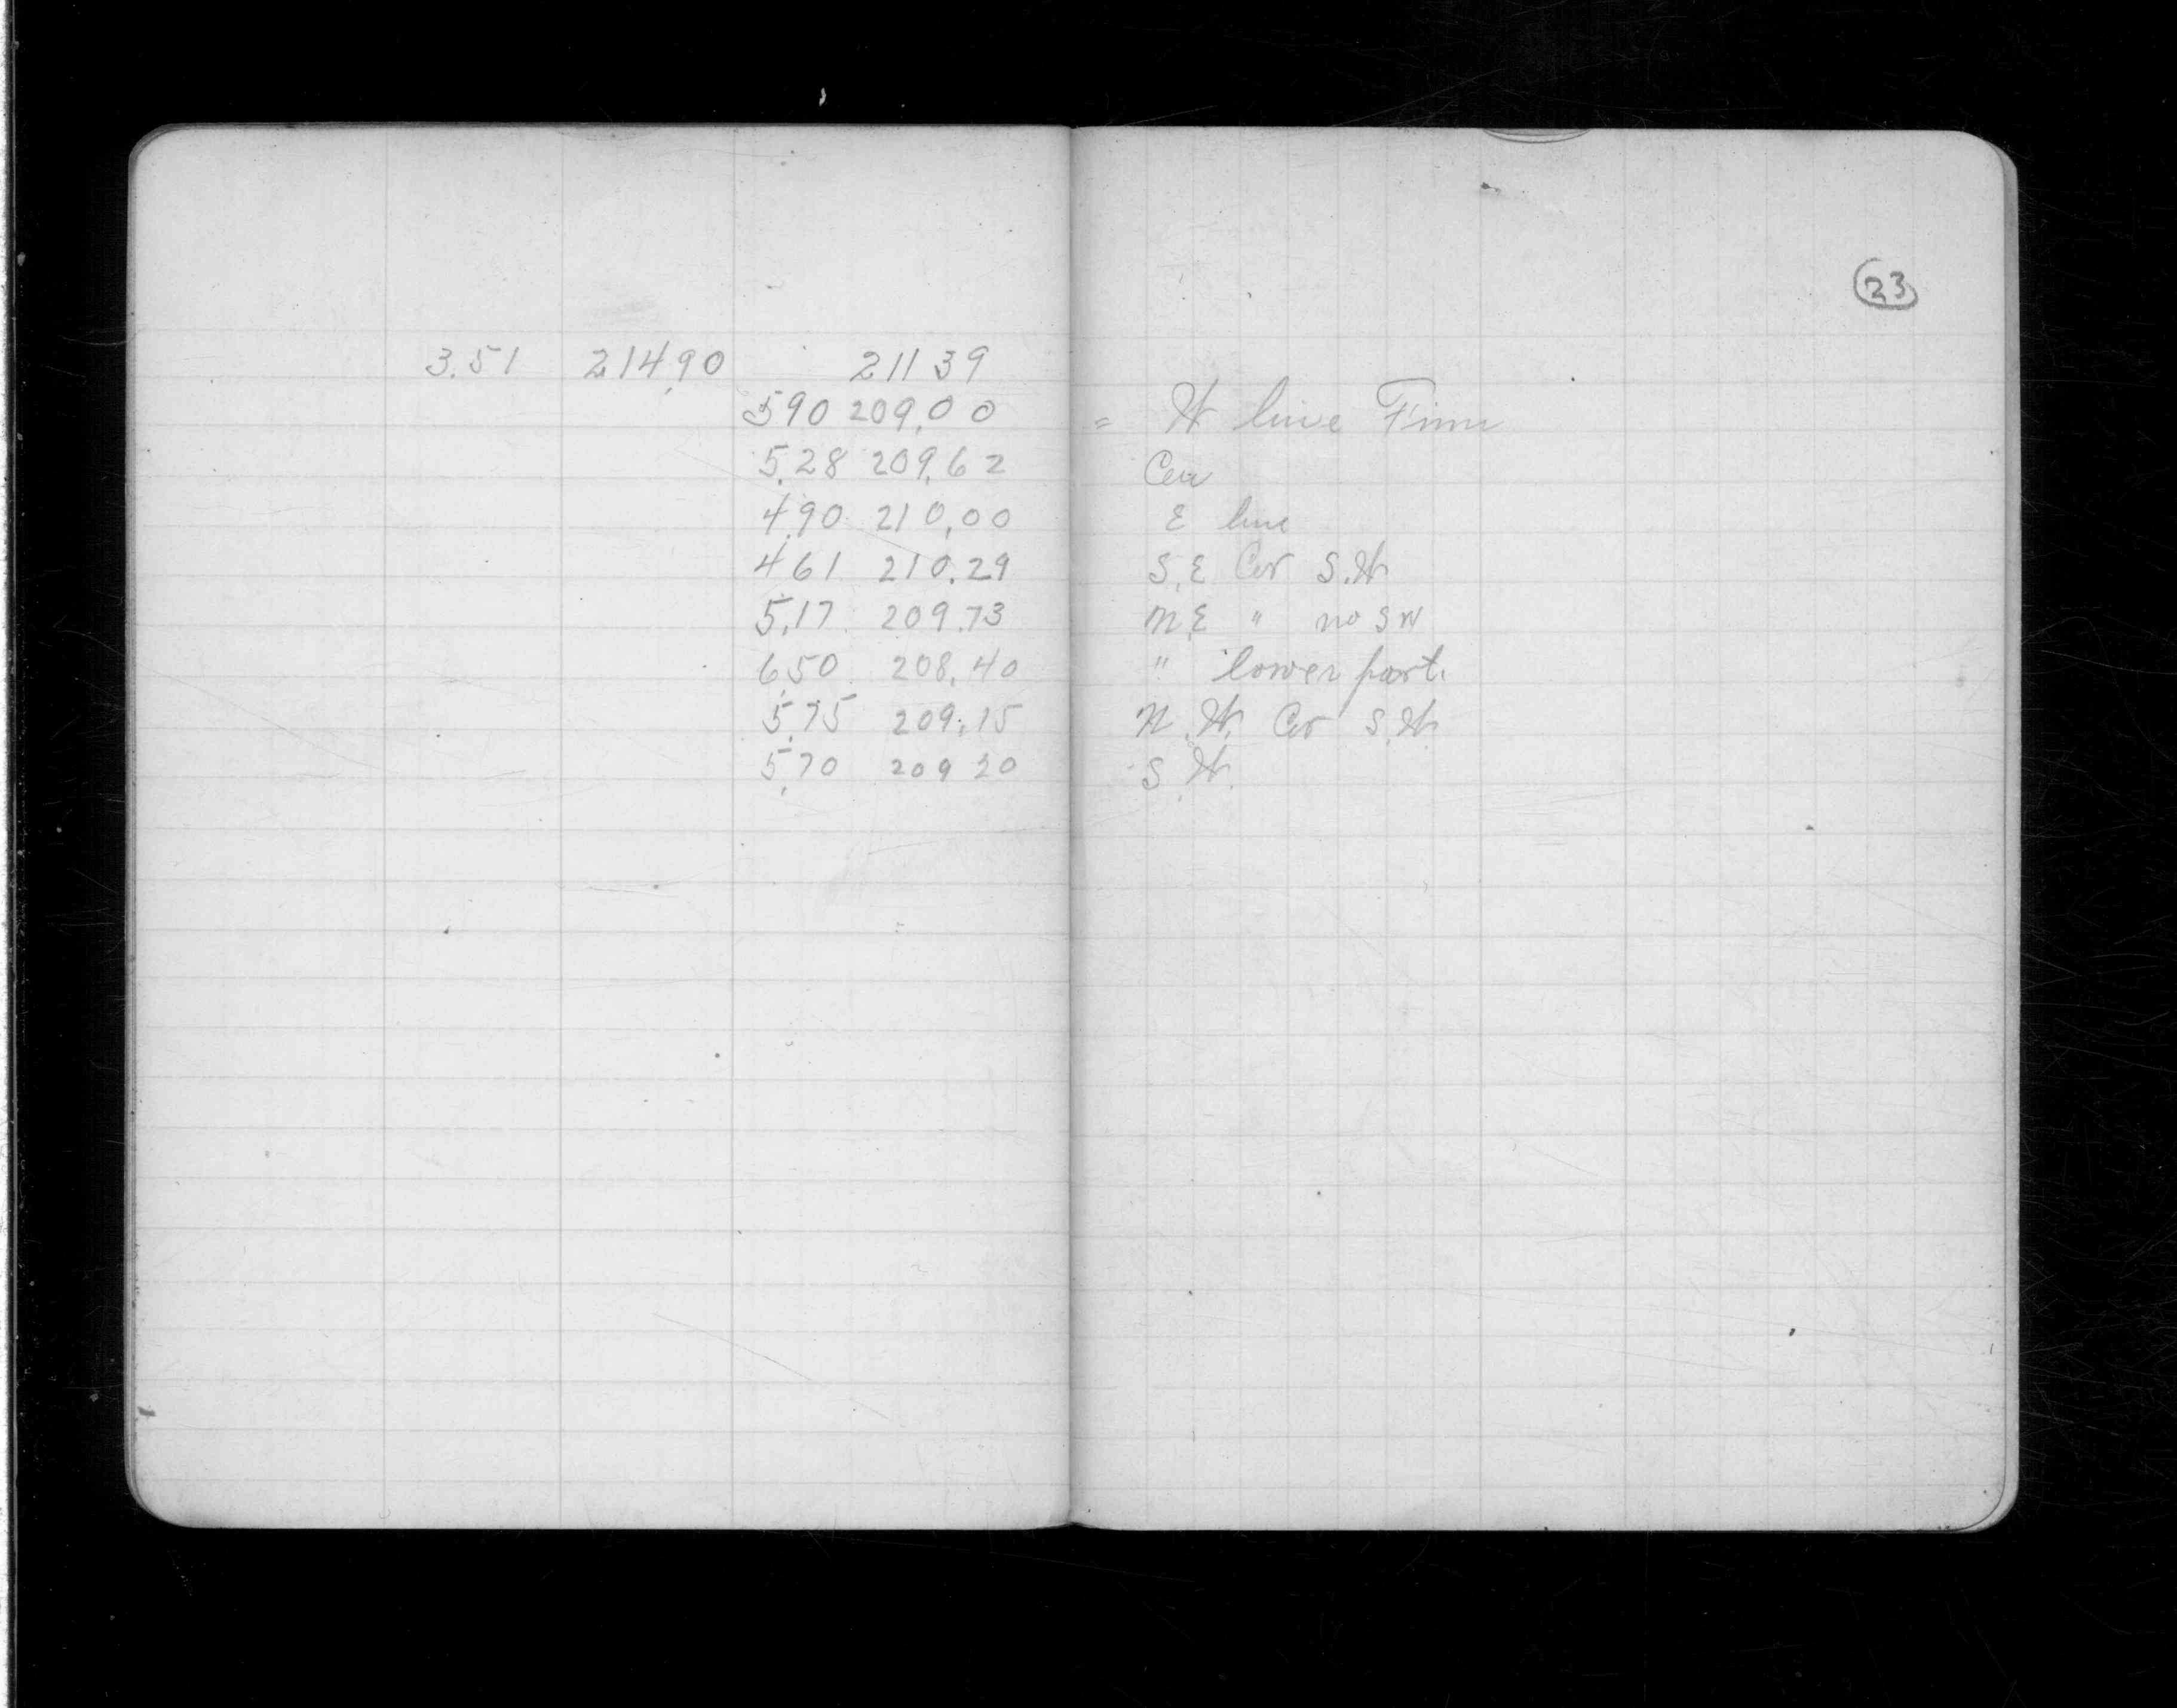 23
3.51 214.90 211 39
5 90 209.00 = W line Finn
5.28 209.62 Cen
4.90 210.00 E line
4 61 210.29 S.E Cor S.W
5.17 209.73 N.E " no S W
6 50 208.40 " lower part.
5.75 209.15 N.W. Cor S.W.
5.70 209 20 S.W.